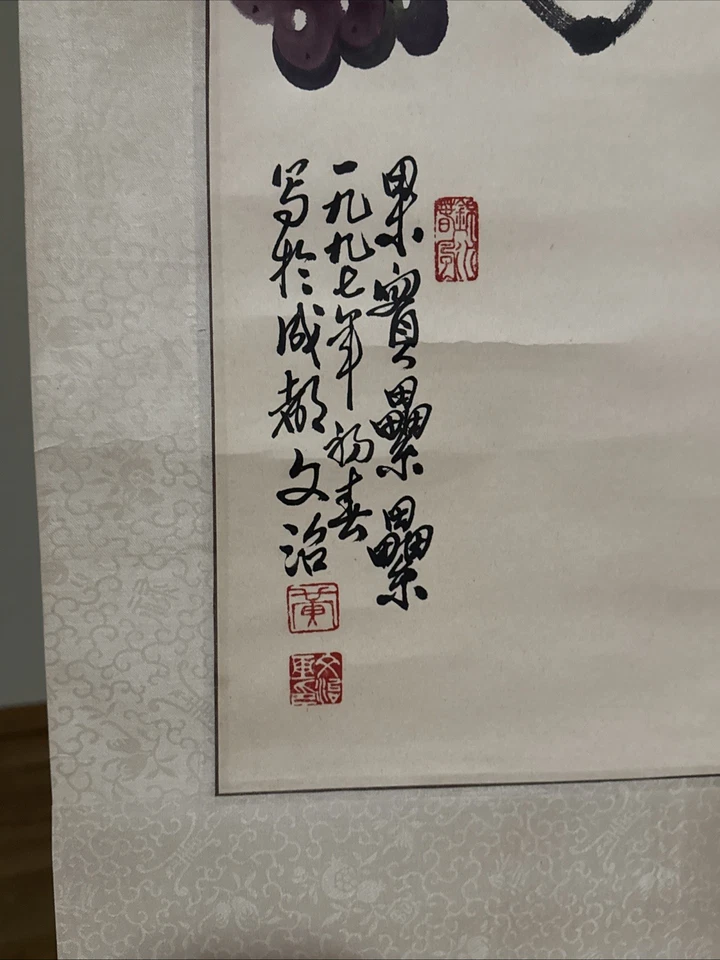 果實纍纍
一九九七年初春
写於成都文治
黃